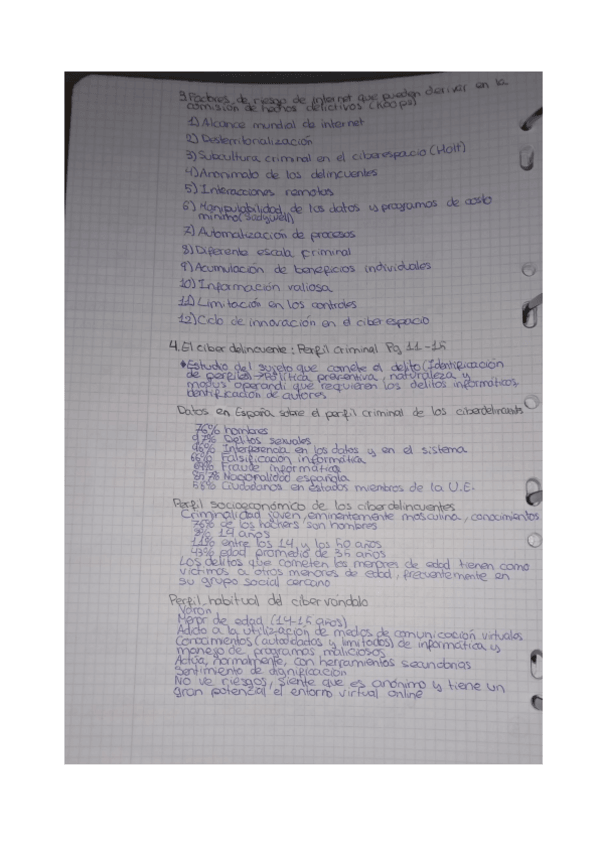 3. Factores de riesgo de internet que pueden derivar en la
comisión de hechos delictivos (Koops)
1) Alcance mundial de internet
2) Desterritorialización
3) Subcultura criminal en el ciberespacio (Wolf)
4) Anonimato de los delincuentes
5) Interacciones remotas
6) Manipulabilidad de los datos y programas de costo
mínimo
7) Automatización de procesos
8) Diferente escala criminal
9) Acumulación de beneficios individuales
10) Información valiosa
11) Limitación en los controles
12) Ciclo de innovación en el ciberespacio
4. El ciberdelincuente: Perfil criminal Pg 11-15
*Estudio del sujeto que comete el delito (Identificación
de perfiles → Política preventiva, naturaleza y
modus operandi que requieren los delitos informáticos,
identificación de autores
Datos en España sobre el perfil criminal de los ciberdelincuentes
76% hombres
97% Delitos sexuales
Interferencia en los datos y en el sistema
66% Falsificación informática
Fraude informático
Nacionalidad española
Ciudadanos en estados miembros de la U.E.
Perfil socioeconómico de los ciberdelincuentes
Criminalidad joven, eminentemente masculina, conocimientos
76% de los hackers son hombres
14 años
11% entre los 14 y los 50 años
43% edad promedio de 35 años
Los delitos que cometen los menores de edad tienen como
víctimas a otros menores de edad, frecuentemente en
su grupo social cercano
Perfil habitual del cibervándalo
Varón
Menor de edad (14-15 años)
Adicto a la utilización de medios de comunicación virtuales
Conocimientos (autodidactas y limitados) de informática y
manejo de programas maliciosos
Actúa, normalmente, con herramientas secundarias
Sentimiento de dignificación
No ve riesgos, siente que es anónimo y tiene un
gran potencial el entorno virtual online